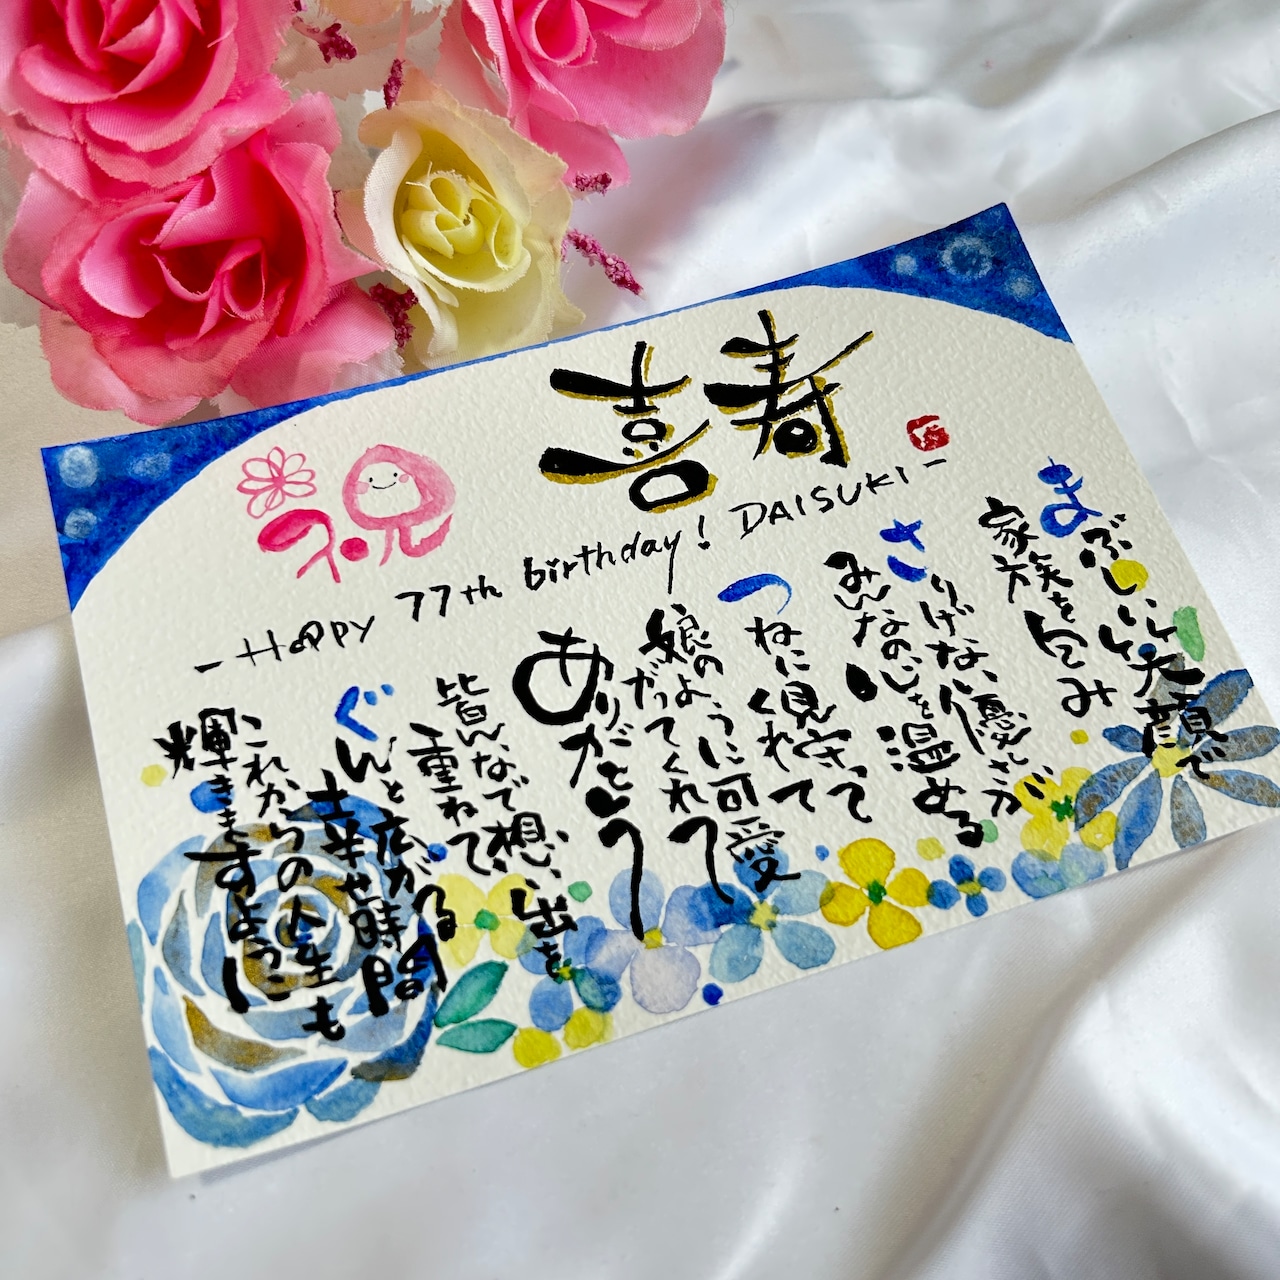 祝
喜寿
- Happy 77th birthday! DAISUKI -
まぶしい笑顔で
家族を包み
さりげない優しさが
みんなの心を温める
つねに見守って
くれて
娘のように可愛
がってくれて
ありがとう
皆んなで想い出を
重ねて
ぐんと広がる
幸せ時間
これからの人生も
輝きますように